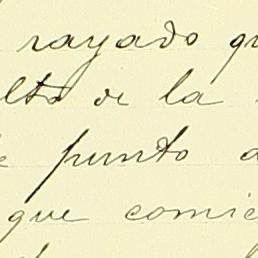 rayado qu
lta de la
punto d
que comie